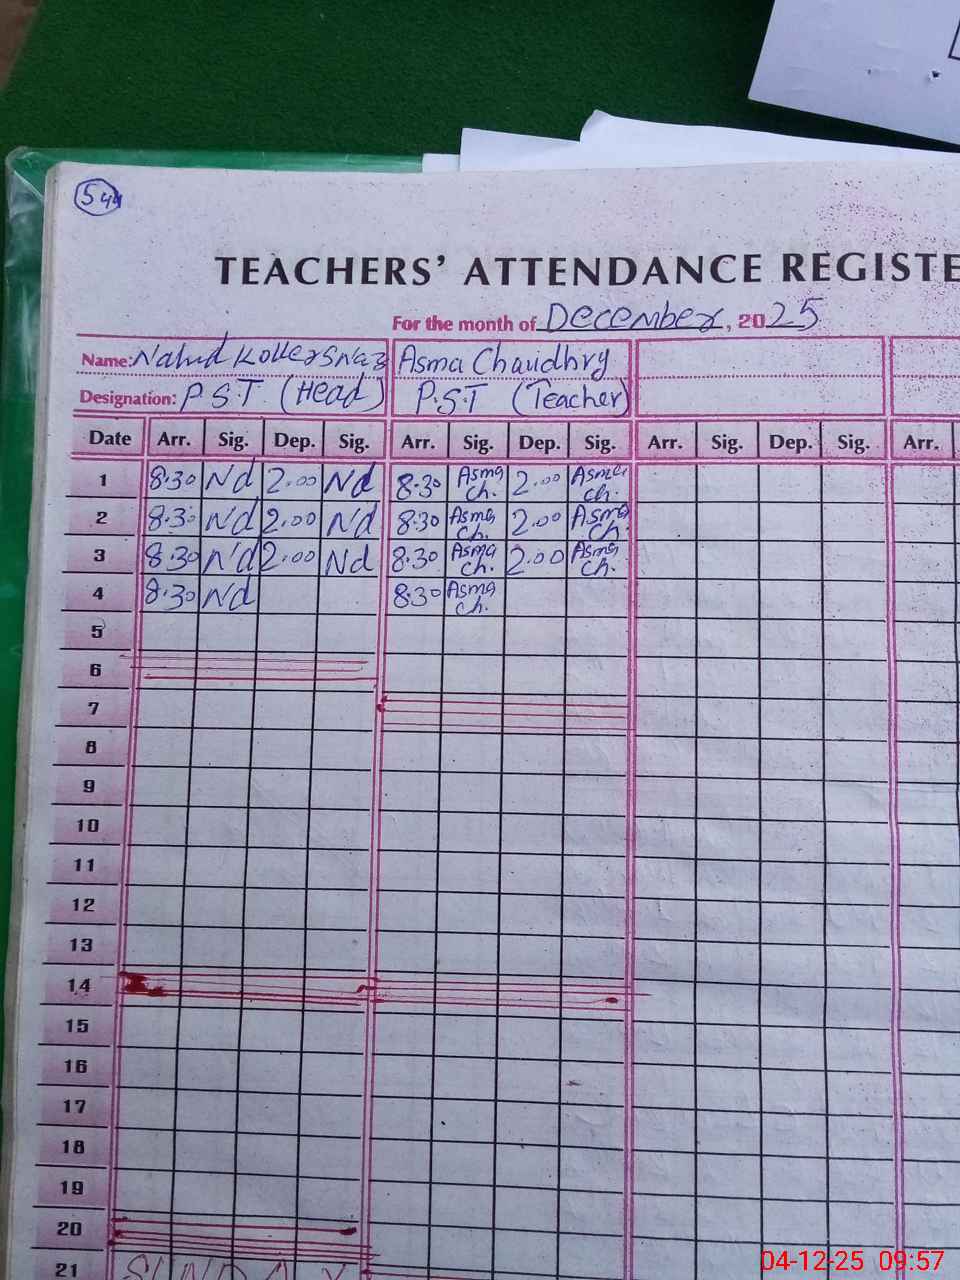 544
TEACHERS' ATTENDANCE REGISTE
For the month of December, 2025
Name: Asma Chaudhry
Designation: P.S.T (Head) P.S.T (Teacher)
Date Arr. Sig. Dep. Sig. Arr. Sig. Dep. Sig. Arr. Sig. Dep. Sig. Arr.
1 8.30 Nd 2.00 Nd 8.30 Asma Ch. 2.00 Asma Ch.
2 8.30 Nd 2.00 Nd 8.30 Asma Ch. 2.00 Asma Ch.
3 8.30 Nd 2.00 Nd 8.30 Asma Ch. 2.00 Asma Ch.
4 8.30 Nd 8.30 Asma Ch.
5
6
7
8
9
10
11
12
13
14
15
16
17
18
19
20
21 SUNDAY
04-12-25 09:57